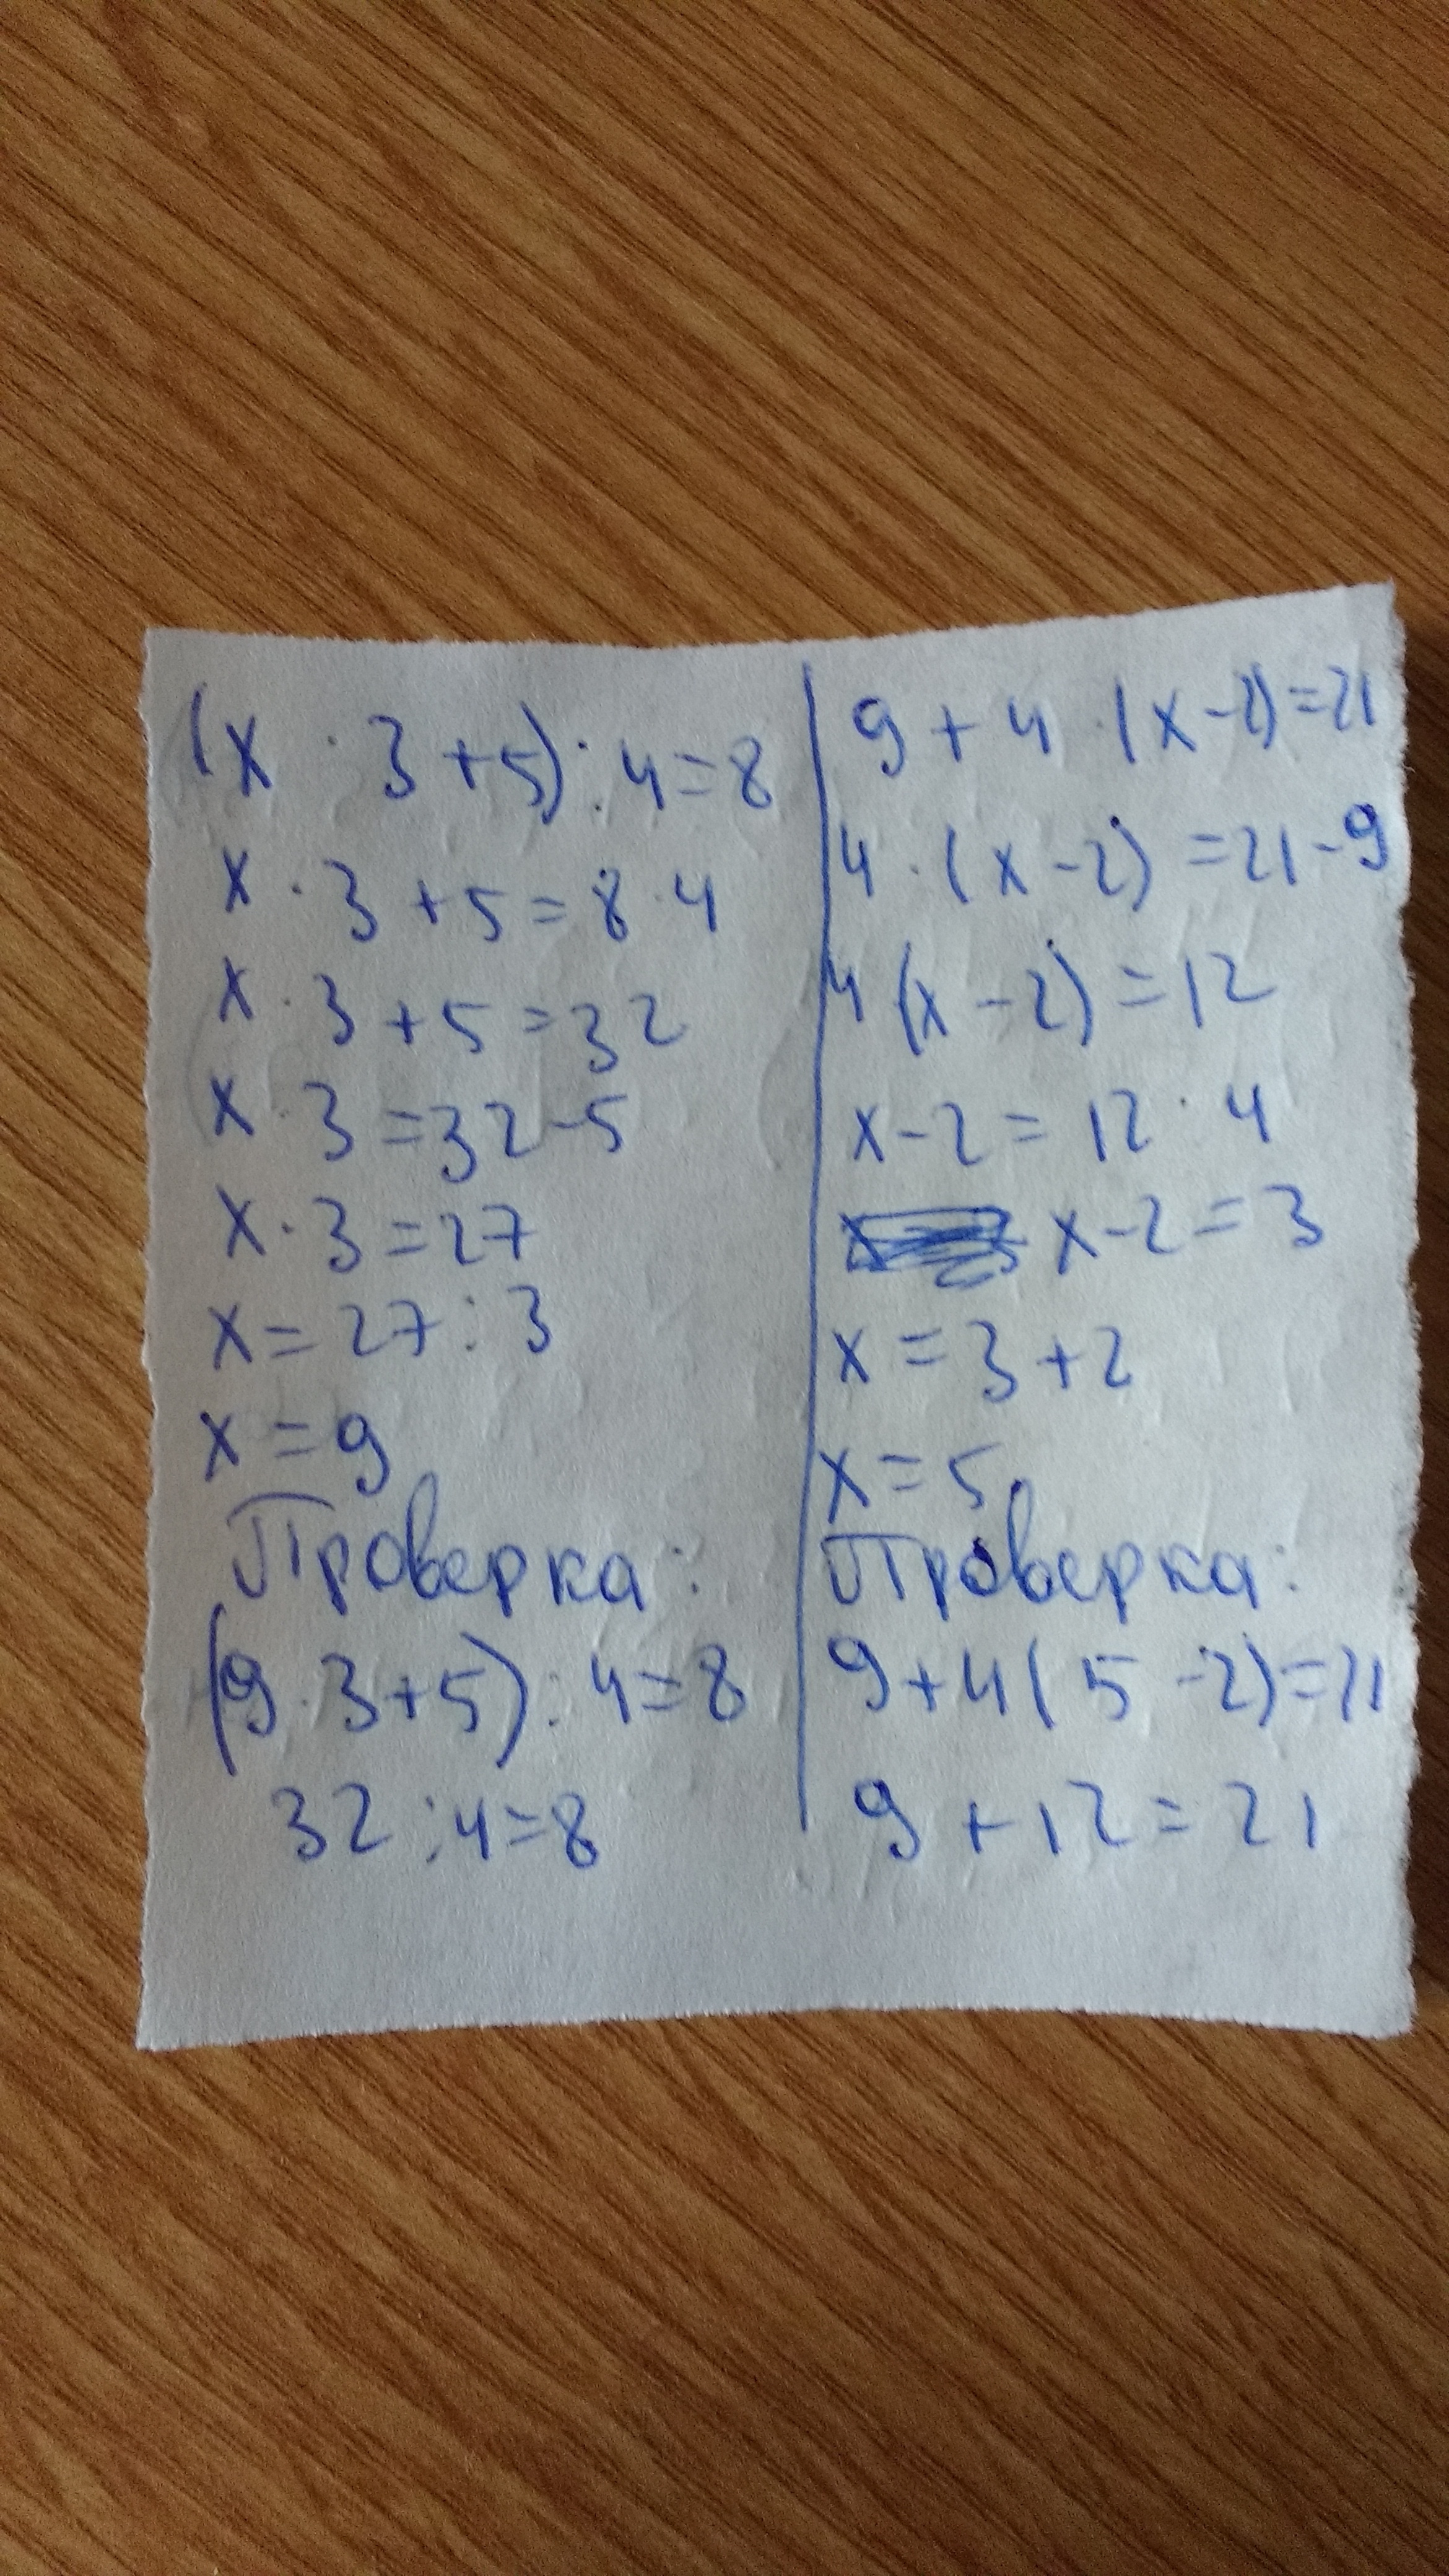 (x · 3 + 5) : 4 = 8
x · 3 + 5 = 8 · 4
x · 3 + 5 = 32
x · 3 = 32 - 5
x · 3 = 27
x = 27 : 3
x = 9
Проверка:
(9 · 3 + 5) : 4 = 8
32 : 4 = 8
9 + 4 · (x - 2) = 21
4 · (x - 2) = 21 - 9
4 (x - 2) = 12
x - 2 = 12 · 4
x - 2 = 3
x = 3 + 2
x = 5
Проверка:
9 + 4 ( 5 - 2) = 21
9 + 12 = 21